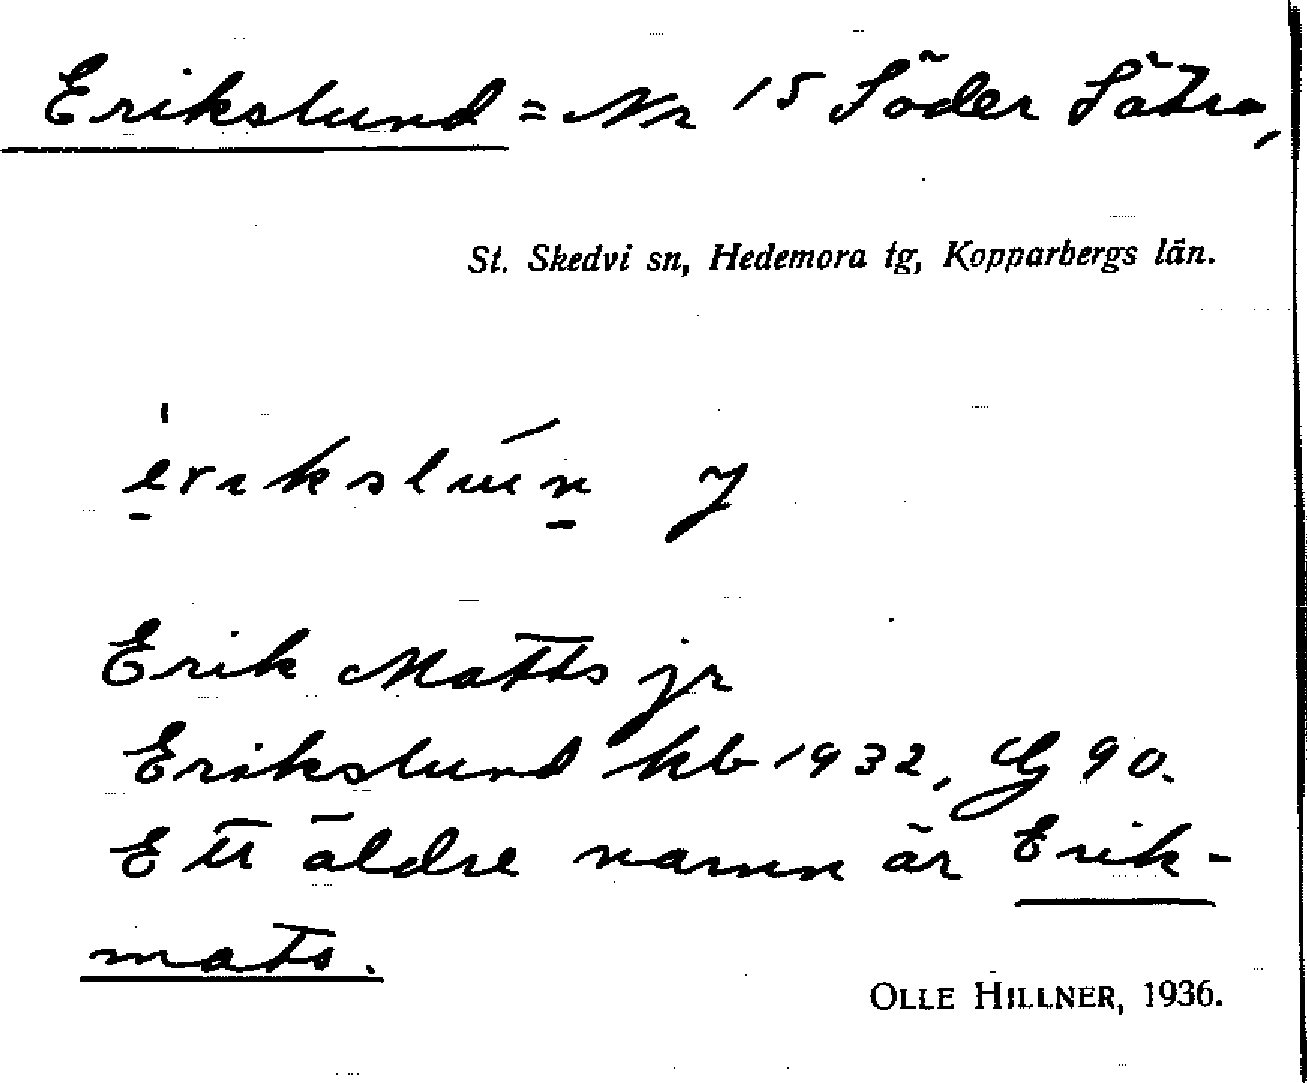 Erikslund = Nr 15 Söder Sätra,
St. Skedvi sn, Hedemora tg, Kopparbergs län.
erikslun
Erik Matts jr
Erikslund kb 1932, G 90.
Ett äldre namn är Erik-
mats.
OLLE HILLNER, 1936.